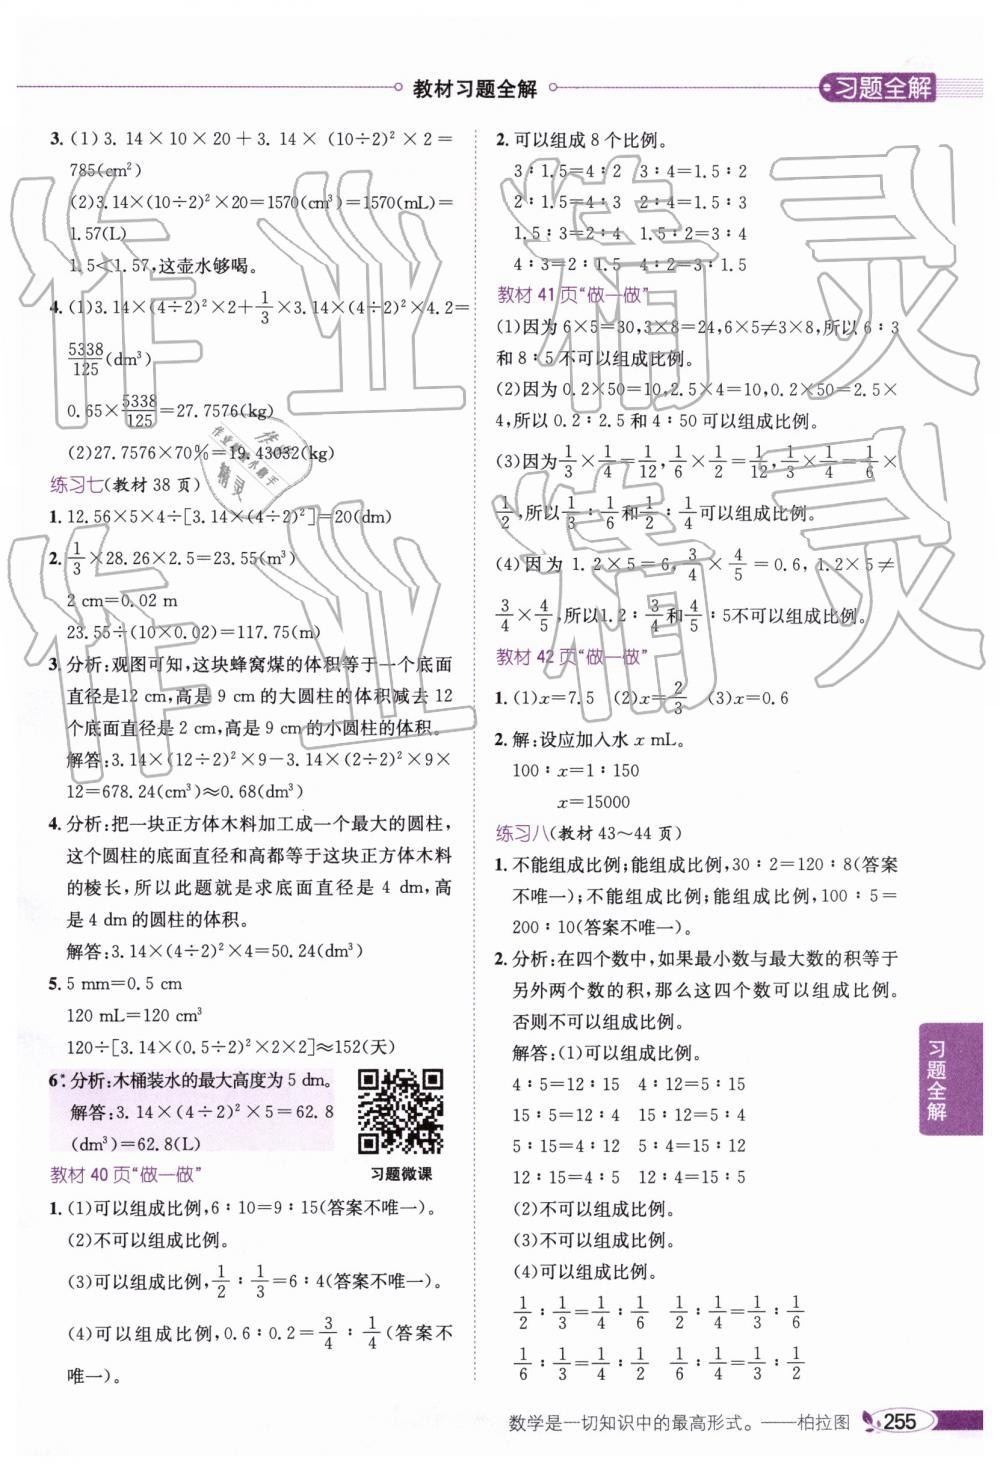 教材习题全解
习题全解
3. (1)3.14×10×20+3.14×(10÷2)²×2=
785(cm²)
(2)3.14×(10÷2)²×20=1570(cm³)=1570(mL)=
1.57(L)
1.5<1.57,这壶水够喝。
4. (1)3.14×(4÷2)²×2+1/3×3.14×(4÷2)²×4.2=
5338/125(dm³)
0.65×5338/125=27.7576(kg)
(2)27.7576×70%=19.43032(kg)
练习七(教材38页)
1. 12.56×5×4÷[3.14×(4÷2)²]=20(dm)
2. 1/3×28.26×2.5=23.55(m³)
2 cm=0.02 m
23.55÷(10×0.02)=117.75(m)
3. 分析:观图可知,这块蜂窝煤的体积等于一个底面
直径是12 cm,高是 9 cm的大圆柱的体积减去 12
个底面直径是 2 cm,高是 9 cm的小圆柱的体积。
解答:3.14×(12÷2)²×9-3.14×(2÷2)²×9×
12=678.24(cm³)≈0.68(dm³)
4. 分析:把一块正方体木料加工成一个最大的圆柱,
这个圆柱的底面直径和高都等于这块正方体木料
的棱长,所以此题就是求底面直径是 4 dm,高
是 4 dm的圆柱的体积。
解答:3.14×(4÷2)²×4=50.24(dm³)
5. 5 mm=0.5 cm
120 mL=120 cm³
120÷[3.14×(0.5÷2)²×2×2]≈152(天)
6*. 分析:木桶装水的最大高度为 5 dm。
解答:3.14×(4÷2)²×5=62.8
(dm³)=62.8(L)
习题微课
教材 40 页“做一做”
1. (1)可以组成比例,6∶10=9∶15(答案不唯一)。
(2)不可以组成比例。
(3)可以组成比例,1/2∶1/3=6∶4(答案不唯一)。
(4)可以组成比例,0.6∶0.2=3/4∶1/4(答案不
唯一)。
2. 可以组成 8 个比例。
3∶1.5=4∶2 3∶4=1.5∶2
2∶1.5=4∶3 2∶4=1.5∶3
1.5∶3=2∶4 1.5∶2=3∶4
4∶3=2∶1.5 4∶2=3∶1.5
教材 41 页“做一做”
(1)因为 6×5=30,3×8=24,6×5≠3×8,所以 6∶3
和 8∶5 不可以组成比例。
(2)因为 0.2×50=10,2.5×4=10,0.2×50=2.5×
4,所以 0.2∶2.5 和 4∶50 可以组成比例。
(3)因为1/3×1/4=1/12,1/6×1/2=1/12,1/3×1/4=1/6×
1/2,所以1/3∶1/6和1/2∶1/4可以组成比例。
(4)因为 1.2×5=6,3/4×4/5=0.6,1.2×5≠
3/4×4/5,所以1.2∶3/4和4/5∶5不可以组成比例。
教材 42 页“做一做”
1. (1)x=7.5 (2)x=2/3 (3)x=0.6
2. 解:设应加入水 x mL。
100∶x=1∶150
x=15000
练习八(教材 43～44 页)
1. 不能组成比例;能组成比例,30∶2=120∶8(答案
不唯一);不能组成比例;能组成比例,100∶5=
200∶10(答案不唯一)。
2. 分析:在四个数中,如果最小数与最大数的积等于
另外两个数的积,那么这四个数可以组成比例。
否则不可以组成比例。
解答:(1)可以组成比例。
4∶5=12∶15 4∶12=5∶15
15∶5=12∶4 15∶12=5∶4
5∶15=4∶12 5∶4=15∶12
12∶15=4∶5 12∶4=15∶5
(2)不可以组成比例。
(3)不可以组成比例。
(4)可以组成比例。
1/2∶1/3=1/4∶1/6 1/2∶1/4=1/3∶1/6
1/6∶1/3=1/4∶1/2 1/6∶1/4=1/3∶1/2
习题全解
数学是一切知识中的最高形式。——柏拉图
255
作业精灵
作业精灵
精灵